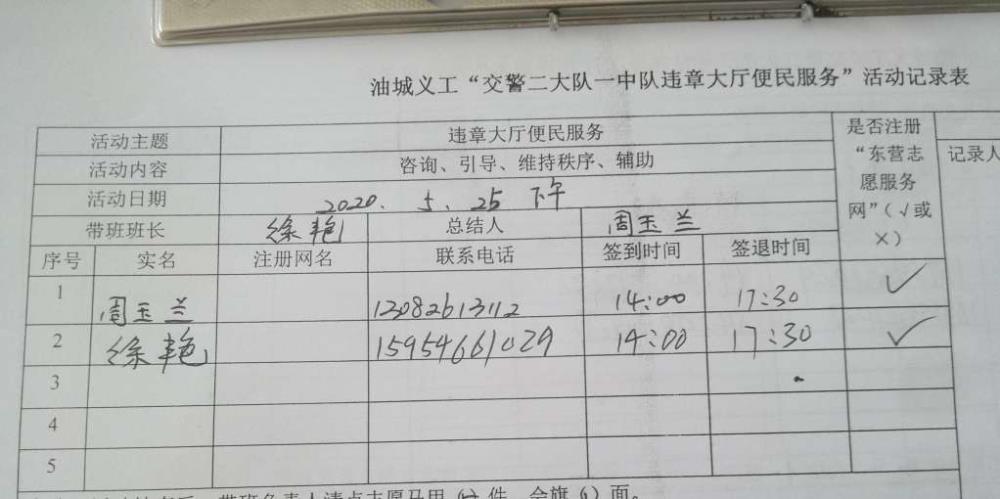 油城义工“交警二大队一中队违章大厅便民服务”活动记录表
活动主题 违章大厅便民服务 是否注册“东营志愿服务网”（√或×） 记录人
活动内容 咨询、引导、维持秩序、辅助
活动日期 2020. 5. 25 下午
带班班长 徐艳 总结人 周玉兰
序号 实名 注册网名 联系电话 签到时间 签退时间
1 周玉兰 13082613112 14:00 17:30 √
2 徐艳 15954661029 14:00 17:30 √
3
4
5
带班负责人请点志愿马甲 件，会旗 面。